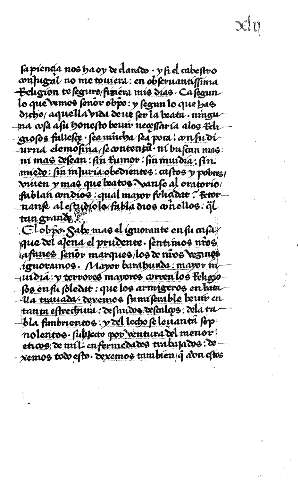 xlv
sapiencia nos ha oy declarado · y si el cabestro
conjugal no me toviera: en observantissima
Religion te seguro, fiziera mis dias. Ca segun
lo que vemos señor obpo: y segun lo que has
dicho, aquella vida deve ser la beata · ningu
na cosa assi honesto bevir necessaria alos Reli
giosos fallesce · sea mucha sea poca: con su di
urna elemosina, se contenta. ni buscan mas
ni mas desean: sin rumor: sin invidia: sin
miedo: sin injuria obedientes: castos y pobres,
viven y mas que beatos. vanse al oratorio,
fablan con dios: qual mayor felicidad? Retor
nanse al estudiolo, fabla dios con ellos: que
tan grande
El obpo. Sabe mas el ignorante en su casa
que del agena el prudente · sentimos nros
afanes señor marques, los de nros vezinos
ignoramos. Mayor barahunda: mayor in
vidia: y terrores mayores corren los Religio
sos en su soledat: que los armigeros en bata
lla travada. dexemos su miserable bevir en
tanta estrechura: desnudos, descalços: dela ta
bla fimbrientos: y del lecho se levanta sop
nolentos. subjecto por ventura del menor:
eticos: de mil enfermedades trabajados: de
xemos todo esto. dexemos tambien, que con estos